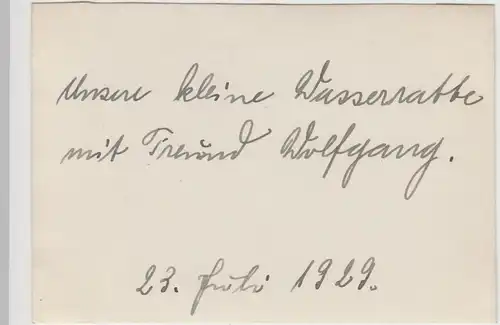 Unsere kleine Wasserratte
mit Freund Wolfgang.
23. Juli 1929.